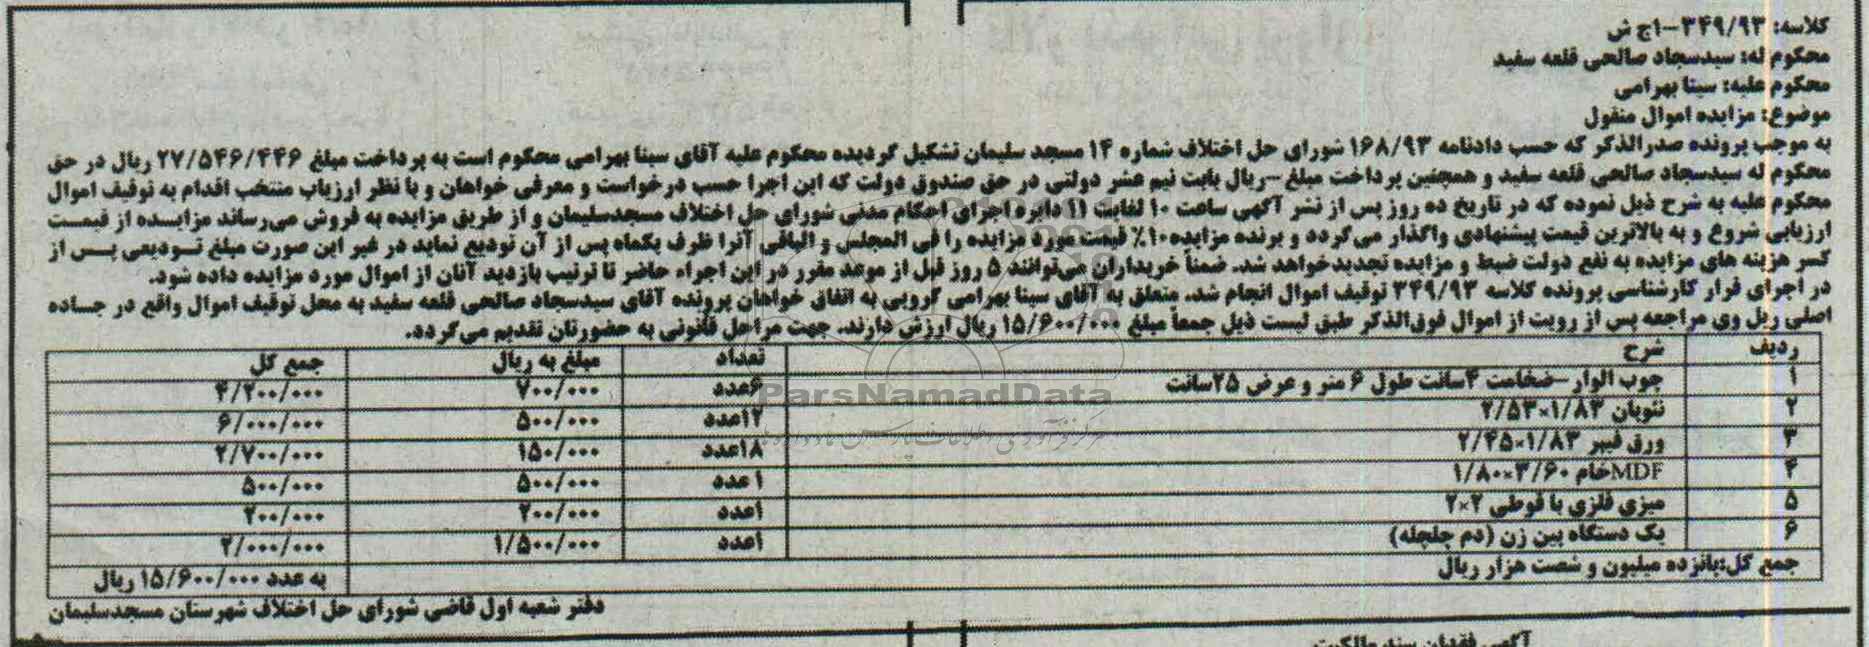 کلاسه: ۳۴۹/۹۳-۱ج ش
محکوم له: سیدسجاد صالحی قلعه سفید
محکوم علیه: سینا بهرامی
موضوع: مزایده اموال منقول
به موجب پرونده صدرالذکر که حسب دادنامه ۱۶۸/۹۳ شورای حل اختلاف شماره ۱۴ مسجد سلیمان تشکیل گردیده محکوم علیه آقای سینا بهرامی محکوم است به پرداخت مبلغ ۲۷/۵۴۶/۴۴۶ ریال در حق
محکوم له سیدسجاد صالحی قلعه سفید و همچنین پرداخت مبلغ -ریال بابت نیم عشر دولتی در حق صندوق دولت که این اجرا حسب درخواست و معرفی خواهان و با نظر ارزیاب منتخب اقدام به توقیف اموال
محکوم علیه به شرح ذیل نموده که در تاریخ ده روز پس از نشر آگهی ساعت ۱۰ لغایت ۱۱ دایره اجرای احکام مدنی شورای حل اختلاف مسجدسلیمان و از طریق مزایده به فروش می‌رساند مزایده از قیمت
ارزیابی شروع و به بالاترین قیمت پیشنهادی واگذار می‌گردد و برنده مزایده ۱۰٪ قیمت مورد مزایده را فی المجلس و الباقی آنرا ظرف یکماه پس از آن تودیع نماید در غیر این صورت مبلغ تودیعی پس از
کسر هزینه های مزایده به نفع دولت ضبط و مزایده تجدیدخواهد شد. ضمناً خریداران می‌توانند ۵ روز قبل از موعد مقرر در این اجراء حاضر تا ترتیب بازدید آنان از اموال مورد مزایده داده شود.
در اجرای قرار کارشناسی پرونده کلاسه ۳۴۹/۹۳ توقیف اموال انجام شد. متعلق به آقای سینا بهرامی گرویی به اتفاق خواهان پرونده آقای سیدسجاد صالحی قلعه سفید به محل توقیف اموال واقع در جاده
اصلی ریل وی مراجعه پس از رویت از اموال فوق‌الذکر طبق لیست ذیل جمعاً مبلغ ۱۵/۶۰۰/۰۰۰ ریال ارزش دارند. جهت مراحل قانونی به حضورتان تقدیم می‌گردد.
ردیف شرح تعداد مبلغ به ریال جمع کل
۱ چوب الوار-ضخامت ۴سانت طول ۶ متر و عرض ۲۵سانت ۶عدد ۷۰۰/۰۰۰ ۴/۲۰۰/۰۰۰
۲ نئوپان ۱/۸۳×۲/۵۳ ۱۲عدد ۵۰۰/۰۰۰ ۶/۰۰۰/۰۰۰
۳ ورق فیبر ۱/۸۳×۲/۴۵ ۱۸عدد ۱۵۰/۰۰۰ ۲/۷۰۰/۰۰۰
۴ MDFخام ۳/۶۰×۱/۸۰ ۱عدد ۵۰۰/۰۰۰ ۵۰۰/۰۰۰
۵ میزی فلزی با قوطی ۲×۲ ۱عدد ۲۰۰/۰۰۰ ۲۰۰/۰۰۰
۶ یک دستگاه بین زن (دم چلچله) ۱عدد ۱/۵۰۰/۰۰۰ ۲/۰۰۰/۰۰۰
جمع کل:پانزده میلیون و شصت هزار ریال به عدد ۱۵/۶۰۰/۰۰۰ ریال
دفتر شعبه اول قاضی شورای حل اختلاف شهرستان مسجدسلیمان
ParsNamadData
آگهی فقدان سند مالکیت